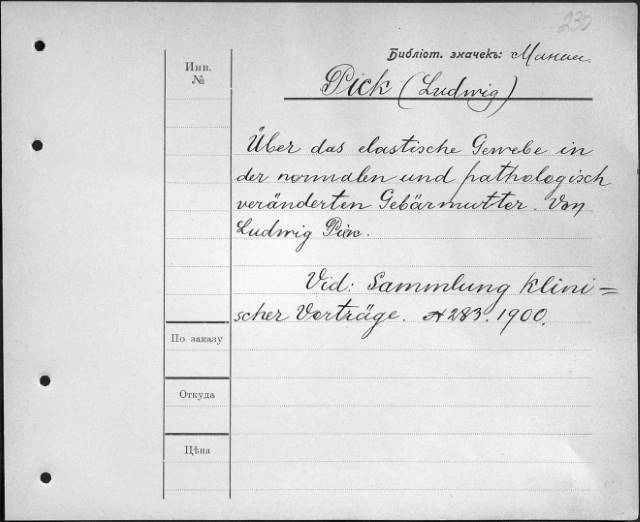 230
Библіот. значекъ:
Инв.
№
Pick (Ludwig)
Über das elastische Gewebe in
der normalen und pathologisch
veränderten Gebärmutter. Von
Ludwig Pick.
Vid: Sammlung klini=
scher Vorträge. № 283. 1900.
По заказу
Откуда
Цѣна